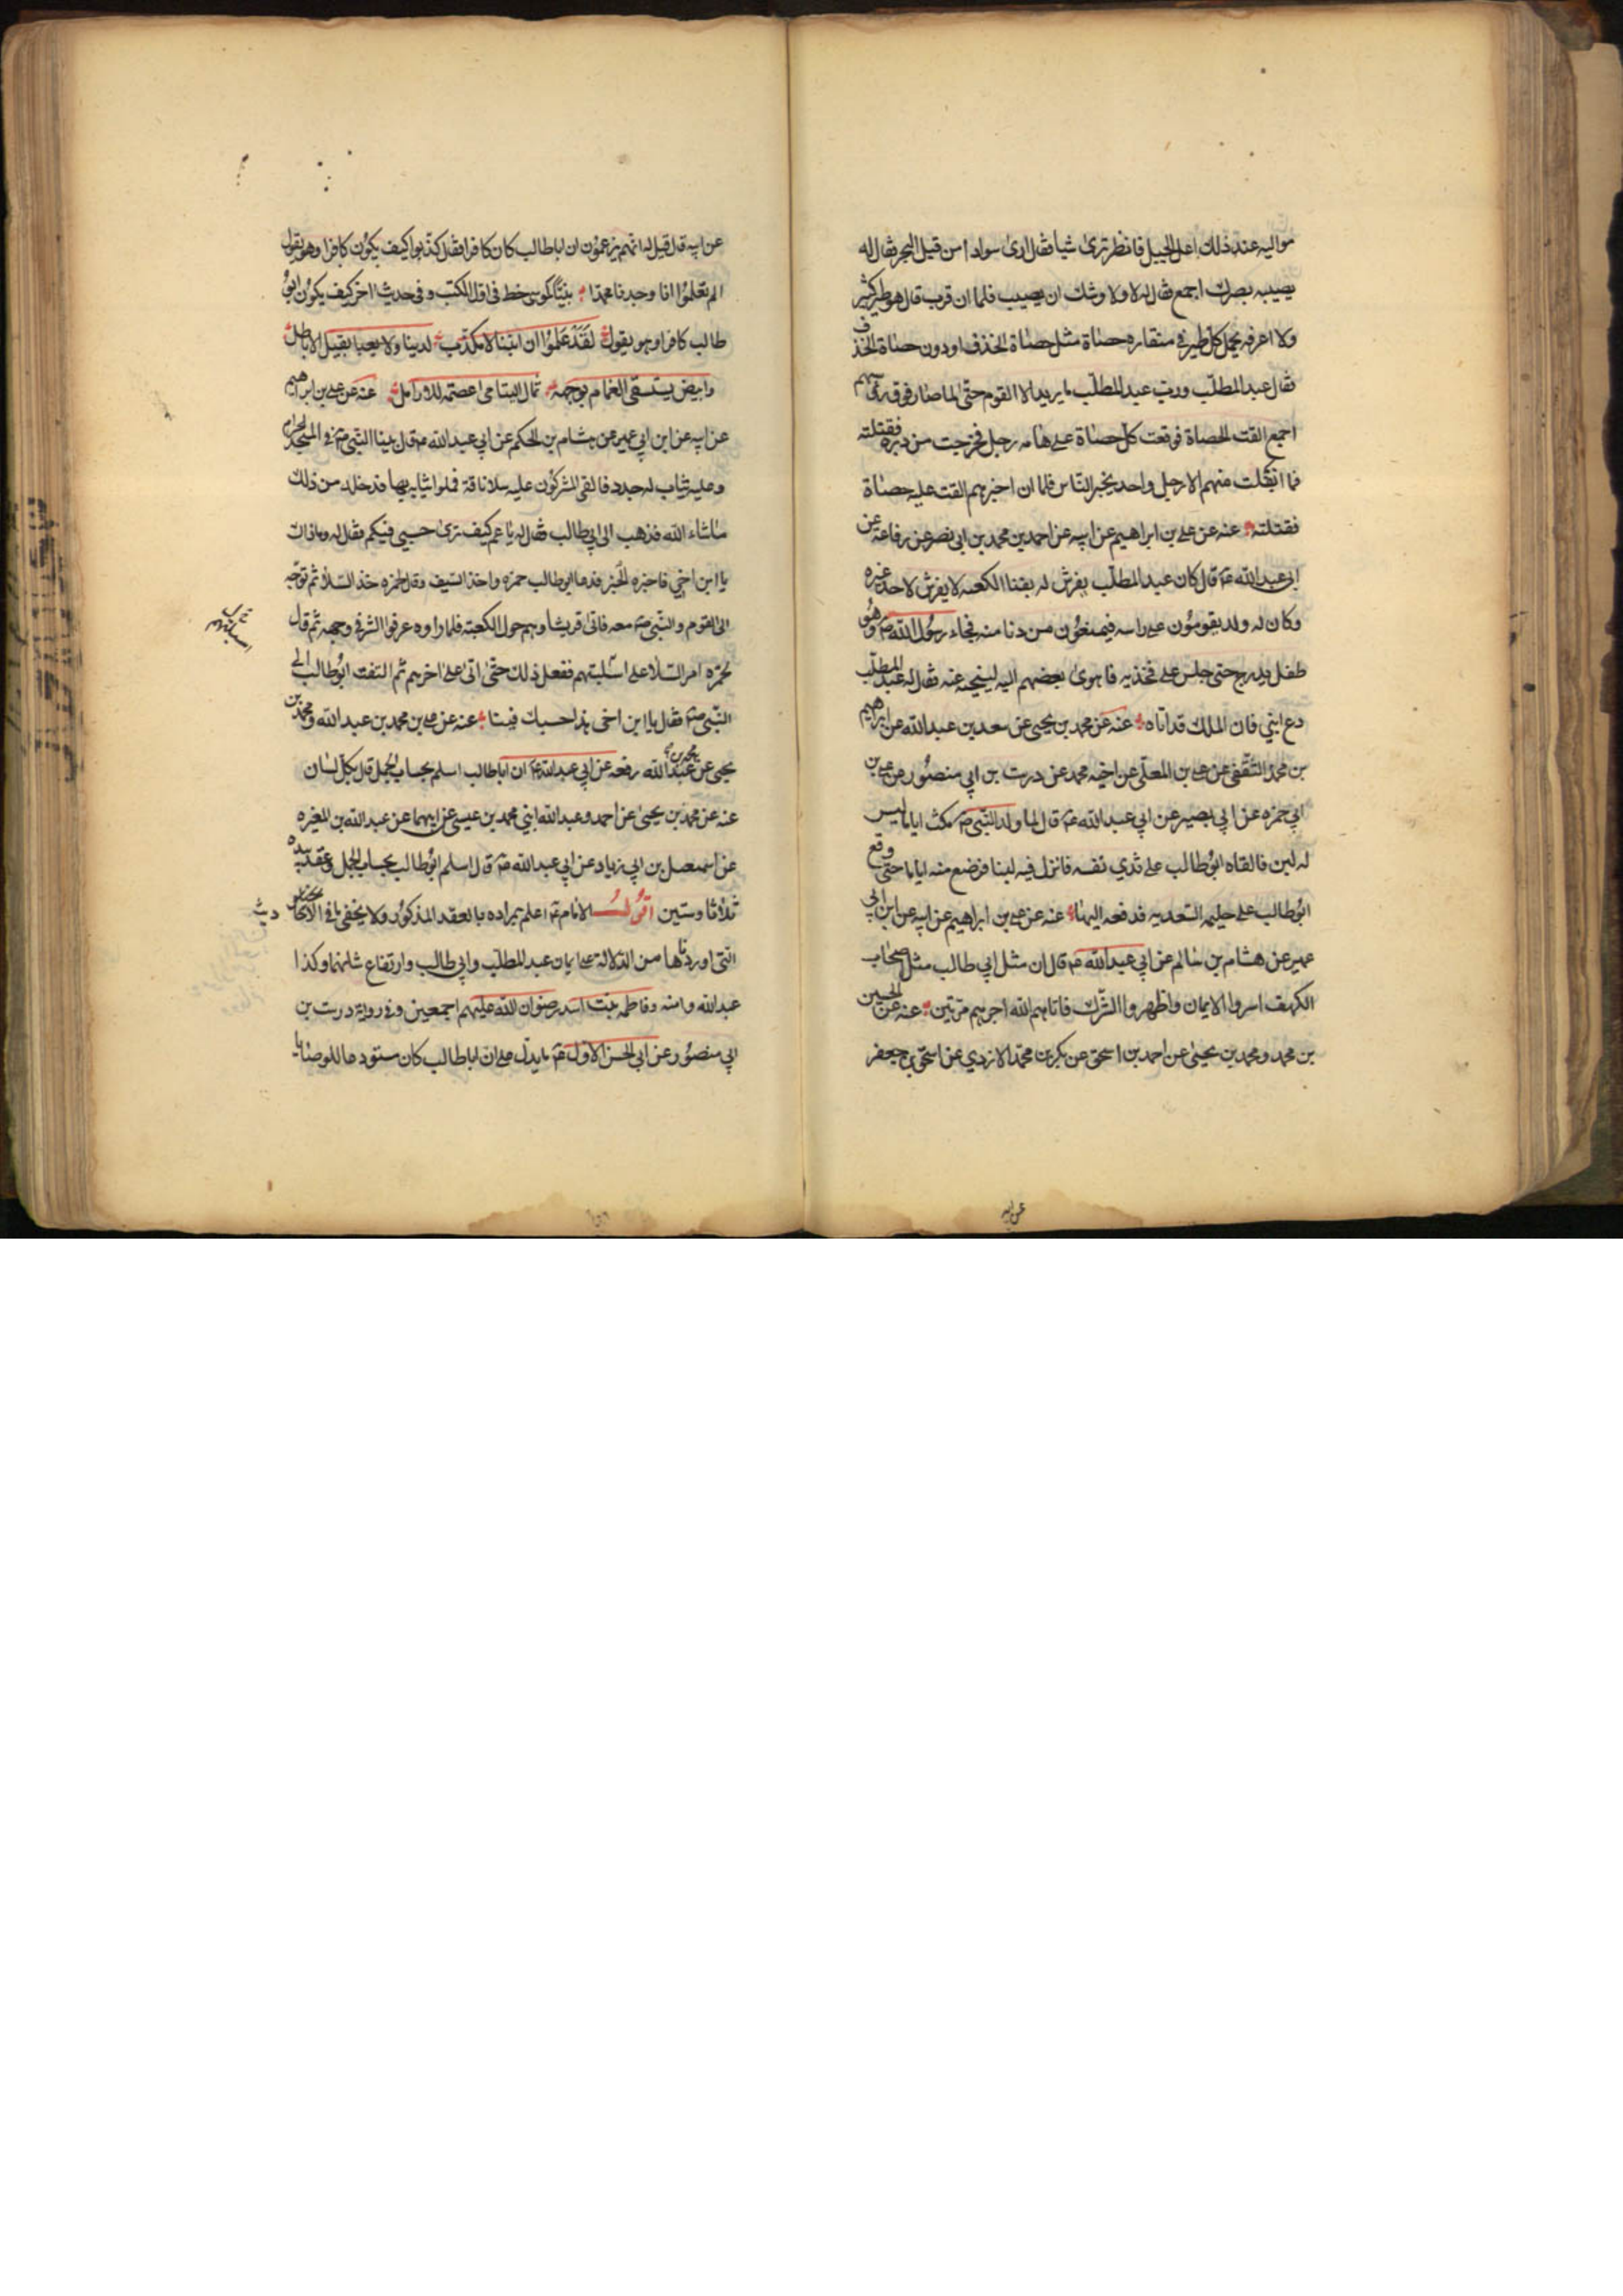 مواليه عند ذلك اعل الجبيل فانظر ترى شيا فقال ارى سوادا من قبل البحر فقال له
يصيبه بصرك اجمع فقال له لا ولاوشك ان يصيب فلما ان قرب قال هو طير كثير
ولا اعرفه يحمل كل طير فى منقاره حصاة مثل حصاة الخذف او دون حصاة الخذف
فقال عبد المطلب ورب عبد المطلب ما يريد الا القوم حتى لما صار فوق رؤسهم
اجمع القت الحصاة فوقعت كل حصاة على هامه رجل فخرجت من دبره فقتلته
فما انفلت منهم الا رجل واحد يخبر الناس فلما ان اخبرهم القت عليه حصاة
فقتلته عنه عن على بن ابراهيم عن ابيه عن احمد بن محمد بن ابى نصر عن رفاعه عن
ابى عبد الله ع قال كان عبد المطلب يفرش له بفنا الكعبه لا يفرش لاحد غيره
وكان له ولد يقومون على راسه فيمنعون من دنا منه فجاء رسول الله ص وهو
طفل يدرج حتى جلس على فخذيه فاهوى بعضهم اليه لينحيه عنه فقال له عبد المطلب
دع ابني فان الملك قد اتاه عنه عن محمد بن يحيى عن سعد بن عبد الله عن ابراهيم
بن محمد الثقفى عن على بن المعلى عن اخيه محمد عن درست بن ابي منصور عن على بن
ابي حمزه عن ابي بصير عن ابي عبد الله ع قال لما ولد النبى ص مكث اياما ليس
له لبن فالقاه ابو طالب على ثدي نفسه فانزل فيه لبنا فرضع منه اياما حتى وقع
ابو طالب على حليمه السعديه فدفعه اليها عنه عن على بن ابراهيم عن ابيه عن ابن ابي
عمير عن هشام بن سالم عن ابي عبد الله ع قال ان مثل ابي طالب مثل اصحاب
الكهف اسروا الايمان واظهروا الشرك فاتاهم الله اجرهم مرتين عنه عن الحسين
بن محمد ومحمد بن يحيى عن احمد بن اسحق عن بكر بن محمد الازدي عن اسحق بن جعفر
عن ابيه
عن ابيه قال قيل له انهم يزعمون ان اباطالب كان كافرا فقال كذبوا كيف يكون كافرا وهو يقول
الم تعلموا انا وجدنا محمدا نبيا كموسى خط فى اول الكتب وفى حديث اخر كيف يكون ابو
طالب كافرا وهو يقول لقد علموا ان ابننا لا مكذب لدينا ولا يعبا بقيل الاباطل
وابيض يستسقى الغمام بوجهه ثمال اليتامى اعصمه للارامل عنه عن على بن ابراهيم
عن ابيه عن ابن ابي عمير عن هشام بن الحكم عن ابي عبد الله ع قال بينا النبى ص فى المسجد الحرام
وعليه ثياب له جدد فالقى المشركون عليه سلا ناقة فملوا ثيابه بها فدخله من ذلك
ماشاء الله فذهب الى ابي طالب فقال له يا عم كيف ترى حسبي فيكم فقال له وما ذاك
يا ابن اخي فاخبره الخبر فدعا ابو طالب حمزه واخذ السيف وقال لحمزه خذ السلا ثم توجه
الى القوم والنبى ص معه فاتى قريشا وهم حول الكعبة فلما راوه عرفوا الشر فى وجهه ثم قال
لحمزه امر السلا على اسبلتهم ففعل ذلك حتى اتى على اخرهم ثم التفت ابو طالب الى
النبى ص فقال يا ابن اخى هذا حسبك فينا عنه عن على بن محمد بن عبد الله ومحمد بن
يحيى عن محمد بن عبد الله رفعه عن ابي عبد الله ع ان اباطالب اسلم بحساب الجمل قال بكل لسان
عنه عن محمد بن يحيى عن احمد وعبد الله ابني محمد بن عيسى عن ابيهما عن عبد الله بن المغيره
عن اسمعيل بن ابي زياد عن ابي عبد الله ع قال اسلم ابو طالب بحساب الجمل وعقد بيده
ثلاثا وستين اقول الامام ع اعلم بمراده بالعقد المذكور ولا يخفى ما فى الاحاديث
التى اوردناها من الدلالة على ايمان عبد المطلب وابي طالب وارتفاع شانهما وكذا
عبد الله وامنه وفاطمه بنت اسد رضوان الله عليهم اجمعين وفى رواية درست بن
ابي منصور عن ابي الحسن الاول ع ما يدل على ان اباطالب كان مستودعا للوصايا